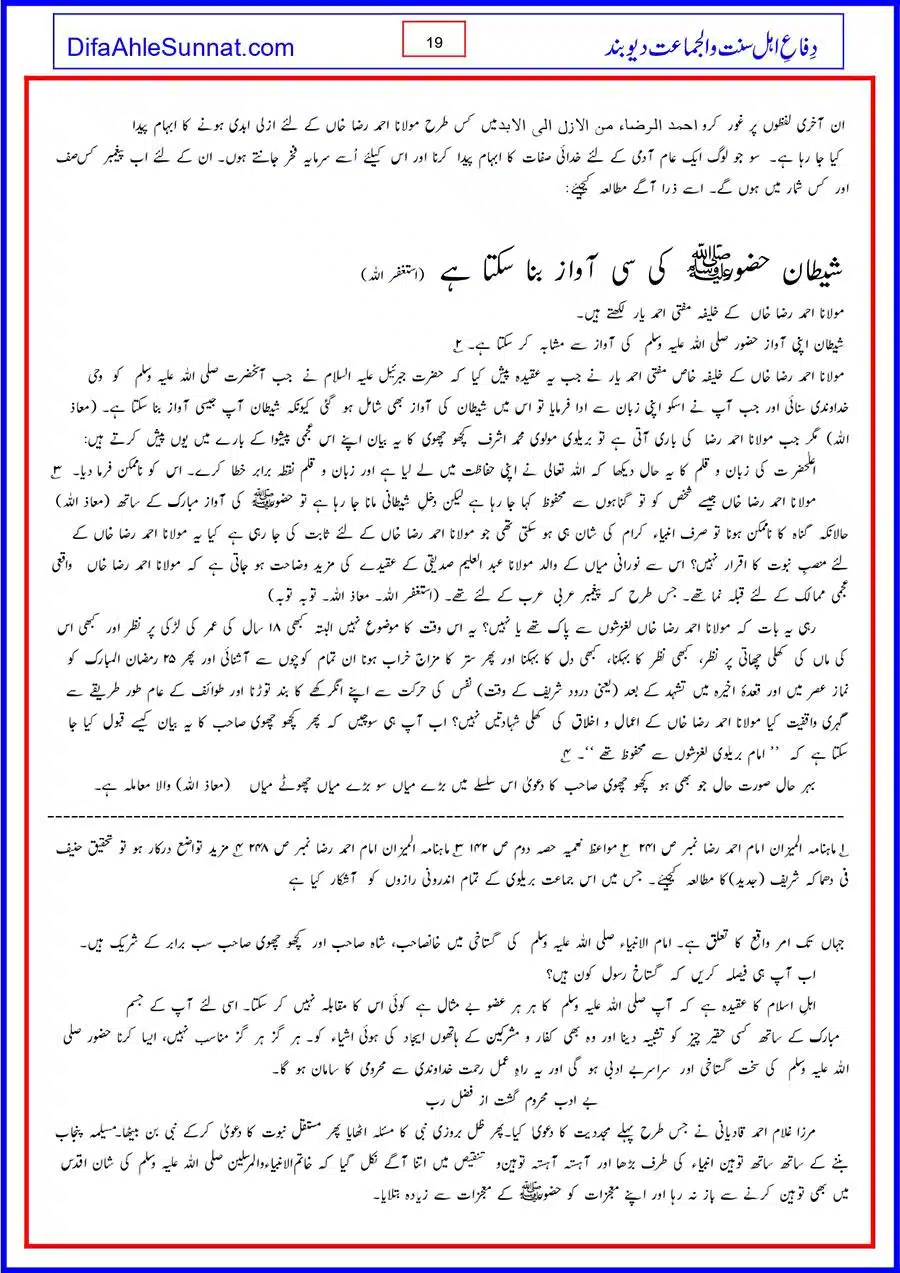 DifaAhleSunnat.com
19
دِفاعِ اہل سنت والجماعت دیوبند
ان آخری لفظوں پر غور کرو احمد الرضاء من الازل الی الابد میں کس طرح مولانا احمد رضا خاں کے لئے ازلی ابدی ہونے کا ابہام پیدا
کیا جا رہا ہے۔ سو جو لوگ ایک عام آدمی کے لئے خدائی صفات کا ابہام پیدا کرنا اور اس کیلئے اُسے سرمایہ فخر جانتے ہوں۔ ان کے لئے اب پیغمبر کس صف
اور کس شمار میں ہوں گے۔ اسے ذرا آگے مطالعہ کیجئے:
شیطان حضورﷺ کی سی آواز بنا سکتا ہے (استغفر اللہ)
مولانا احمد رضا خاں کے خلیفہ مفتی احمد یار لکھتے ہیں۔
شیطان اپنی آواز حضور صلی اللہ علیہ وسلم کی آواز سے مشابہ کر سکتا ہے۔ ۲؎
مولانا احمد رضا خاں کے خلیفہ خاص مفتی احمد یار نے جب یہ عقیدہ پیش کیا کہ حضرت جبرئیل علیہ السلام نے جب آنحضرت صلی اللہ علیہ وسلم کو وحی
خداوندی سنائی اور جب آپ نے اسکو اپنی زبان سے ادا فرمایا تو اس میں شیطان کی آواز بھی شامل ہو گئی کیونکہ شیطان آپ جیسی آواز بنا سکتا ہے۔ (معاذ
اللہ) مگر جب مولانا احمد رضا کی باری آتی ہے تو بریلوی مولوی محمد اشرف کچھو چھوی کا یہ بیان اپنے اس عجمی پیشوا کے بارے میں یوں پیش کرتے ہیں:
اعلحضرت کی زبان و قلم کا یہ حال دیکھا کہ اللہ تعالی نے اپنی حفاظت میں لے لیا ہے اور زبان و قلم نقطہ برابر خطا کرے۔ اس کو ناممکن فرما دیا۔ ۳؎
مولانا احمد رضا خاں جیسے شخص کو تو گناہوں سے محفوظ کہا جا رہا ہے لیکن دخلِ شیطانی مانا جا رہا ہے تو حضورﷺ کی آواز مبارک کے ساتھ (معاذ اللہ)
حالانکہ گناہ کا ناممکن ہونا تو صرف انبیاء کرام کی شان ہی ہو سکتی تھی جو مولانا احمد رضا خاں کے لئے ثابت کی جا رہی ہے کیا یہ مولانا احمد رضا خاں کے
لئے منصبِ نبوت کا اقرار نہیں؟ اس سے نورانی میاں کے والد مولانا عبد العلیم صدیقی کے عقیدے کی مزید وضاحت ہو جاتی ہے کہ مولانا احمد رضا خاں واقعی
عجمی ممالک کے لئے قبلہ نما تھے۔ جس طرح کہ پیغمبر عربی عرب کے لئے تھے۔ (استغفر اللہ۔ معاذ اللہ۔ توبہ توبہ)
رہی یہ بات کہ مولانا احمد رضا خاں لغزشوں سے پاک تھے یا نہیں؟ یہ اس وقت کا موضوع نہیں البتہ کبھی ۱۸ سال کی عمر کی لڑکی پر نظر اور کبھی اس
کی ماں کی کھلی چھاتی پر نظر، کبھی نظر کا بہکنا، کبھی دل کا بہکنا اور پھر ستر کا مزاج خراب ہونا ان تمام کوچوں سے آشنائی اور پھر ۲۵ رمضان المبارک کو
نماز عصر میں اور قعدۂ اخیرہ میں تشہد کے بعد (یعنی درود شریف کے وقت) نفس کی حرکت سے اپنے انگرکھے کا بند توڑنا اور طوائف کے عام طور طریقے سے
گہری واقفیت کیا مولانا احمد رضا خاں کے اعمال و اخلاق کی کھلی شہادتیں نہیں؟ اب آپ ہی سوچیں کہ پھر کچھو چھوی صاحب کا یہ بیان کیسے قبول کیا جا
سکتا ہے کہ ’’ امام بریلوی لغزشوں سے محفوظ تھے ‘‘۔ ۴؎
بہر حال صورت حال جو بھی ہو کچھو چھوی صاحب کا دعویٰ اس سلسلے میں بڑے میاں سو بڑے میاں چھوٹے میاں (معاذ اللہ) والا معاملہ ہے۔
۱؎ ماہنامہ المیزان امام احمد رضا نمبر ص ۲۴۱ ۲؎ مواعظ نعمیہ حصہ دوم ص ۱۴۲ ۳؎ ماہنامہ المیزان امام احمد رضا نمبر ص ۲۴۸ ۴؎ مزید تواضع درکار ہو تو تحقیق حنیف
فی دھماکہ شریف (جدید) کا مطالعہ کیجیئے۔ جس میں اس جماعت بریلوی کے تمام اندرونی رازوں کو آشکار کیا ہے
جہاں تک امر واقع کا تعلق ہے۔ امام الانبیاء صلی اللہ علیہ وسلم کی گستاخی میں خانصاحب، شاہ صاحب اور کچھو چھوی صاحب سب برابر کے شریک ہیں۔
اب آپ ہی فیصلہ کریں کہ گستاخ رسول کون ہیں؟
اہل اسلام کا عقیدہ ہے کہ آپ صلی اللہ علیہ وسلم کا ہر ہر عضو بے مثال ہے کوئی اس کا مقابلہ نہیں کر سکتا۔ اسی لئے آپ کے جسم
مبارک کے ساتھ کسی حقیر چیز کو تشبیہ دینا اور وہ بھی کفار و مشرکین کے ہاتھوں ایجاد کی ہوئی اشیاء کو۔ ہر گز ہر گز مناسب نہیں، ایسا کرنا حضور صلی
اللہ علیہ وسلم کی سخت گستاخی اور سراسر بے ادبی ہو گی اور یہ راہِ عمل رحمت خداوندی سے محرومی کا سامان ہو گا۔
بے ادب محروم گشت از فضل رب
مرزا غلام احمد قادیانی نے جس طرح پہلے مجددیت کا دعویٰ کیا۔پھر ظل بروزی نبی کا مسئلہ اٹھایا پھر مستقل نبوت کا دعویٰ کرکے نبی بن بیٹھا۔مسیلمہ پنجاب
بننے کے ساتھ ساتھ توہین انبیاء کی طرف بڑھا اور آہستہ آہستہ توہین و تنقیص میں اتنا آگے نکل گیا کہ خاتم الانبیاء والمرسلین صلی اللہ علیہ وسلم کی شان اقدس
میں بھی توہین کرنے سے باز نہ رہا اور اپنے معجزات کو حضورﷺ کے معجزات سے زیادہ بتلایا۔